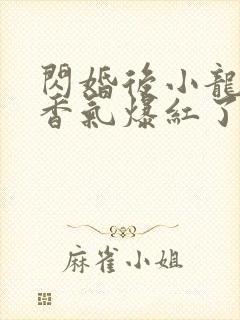 閃婚後小龍
香氣爆紅了
麻雀小姐